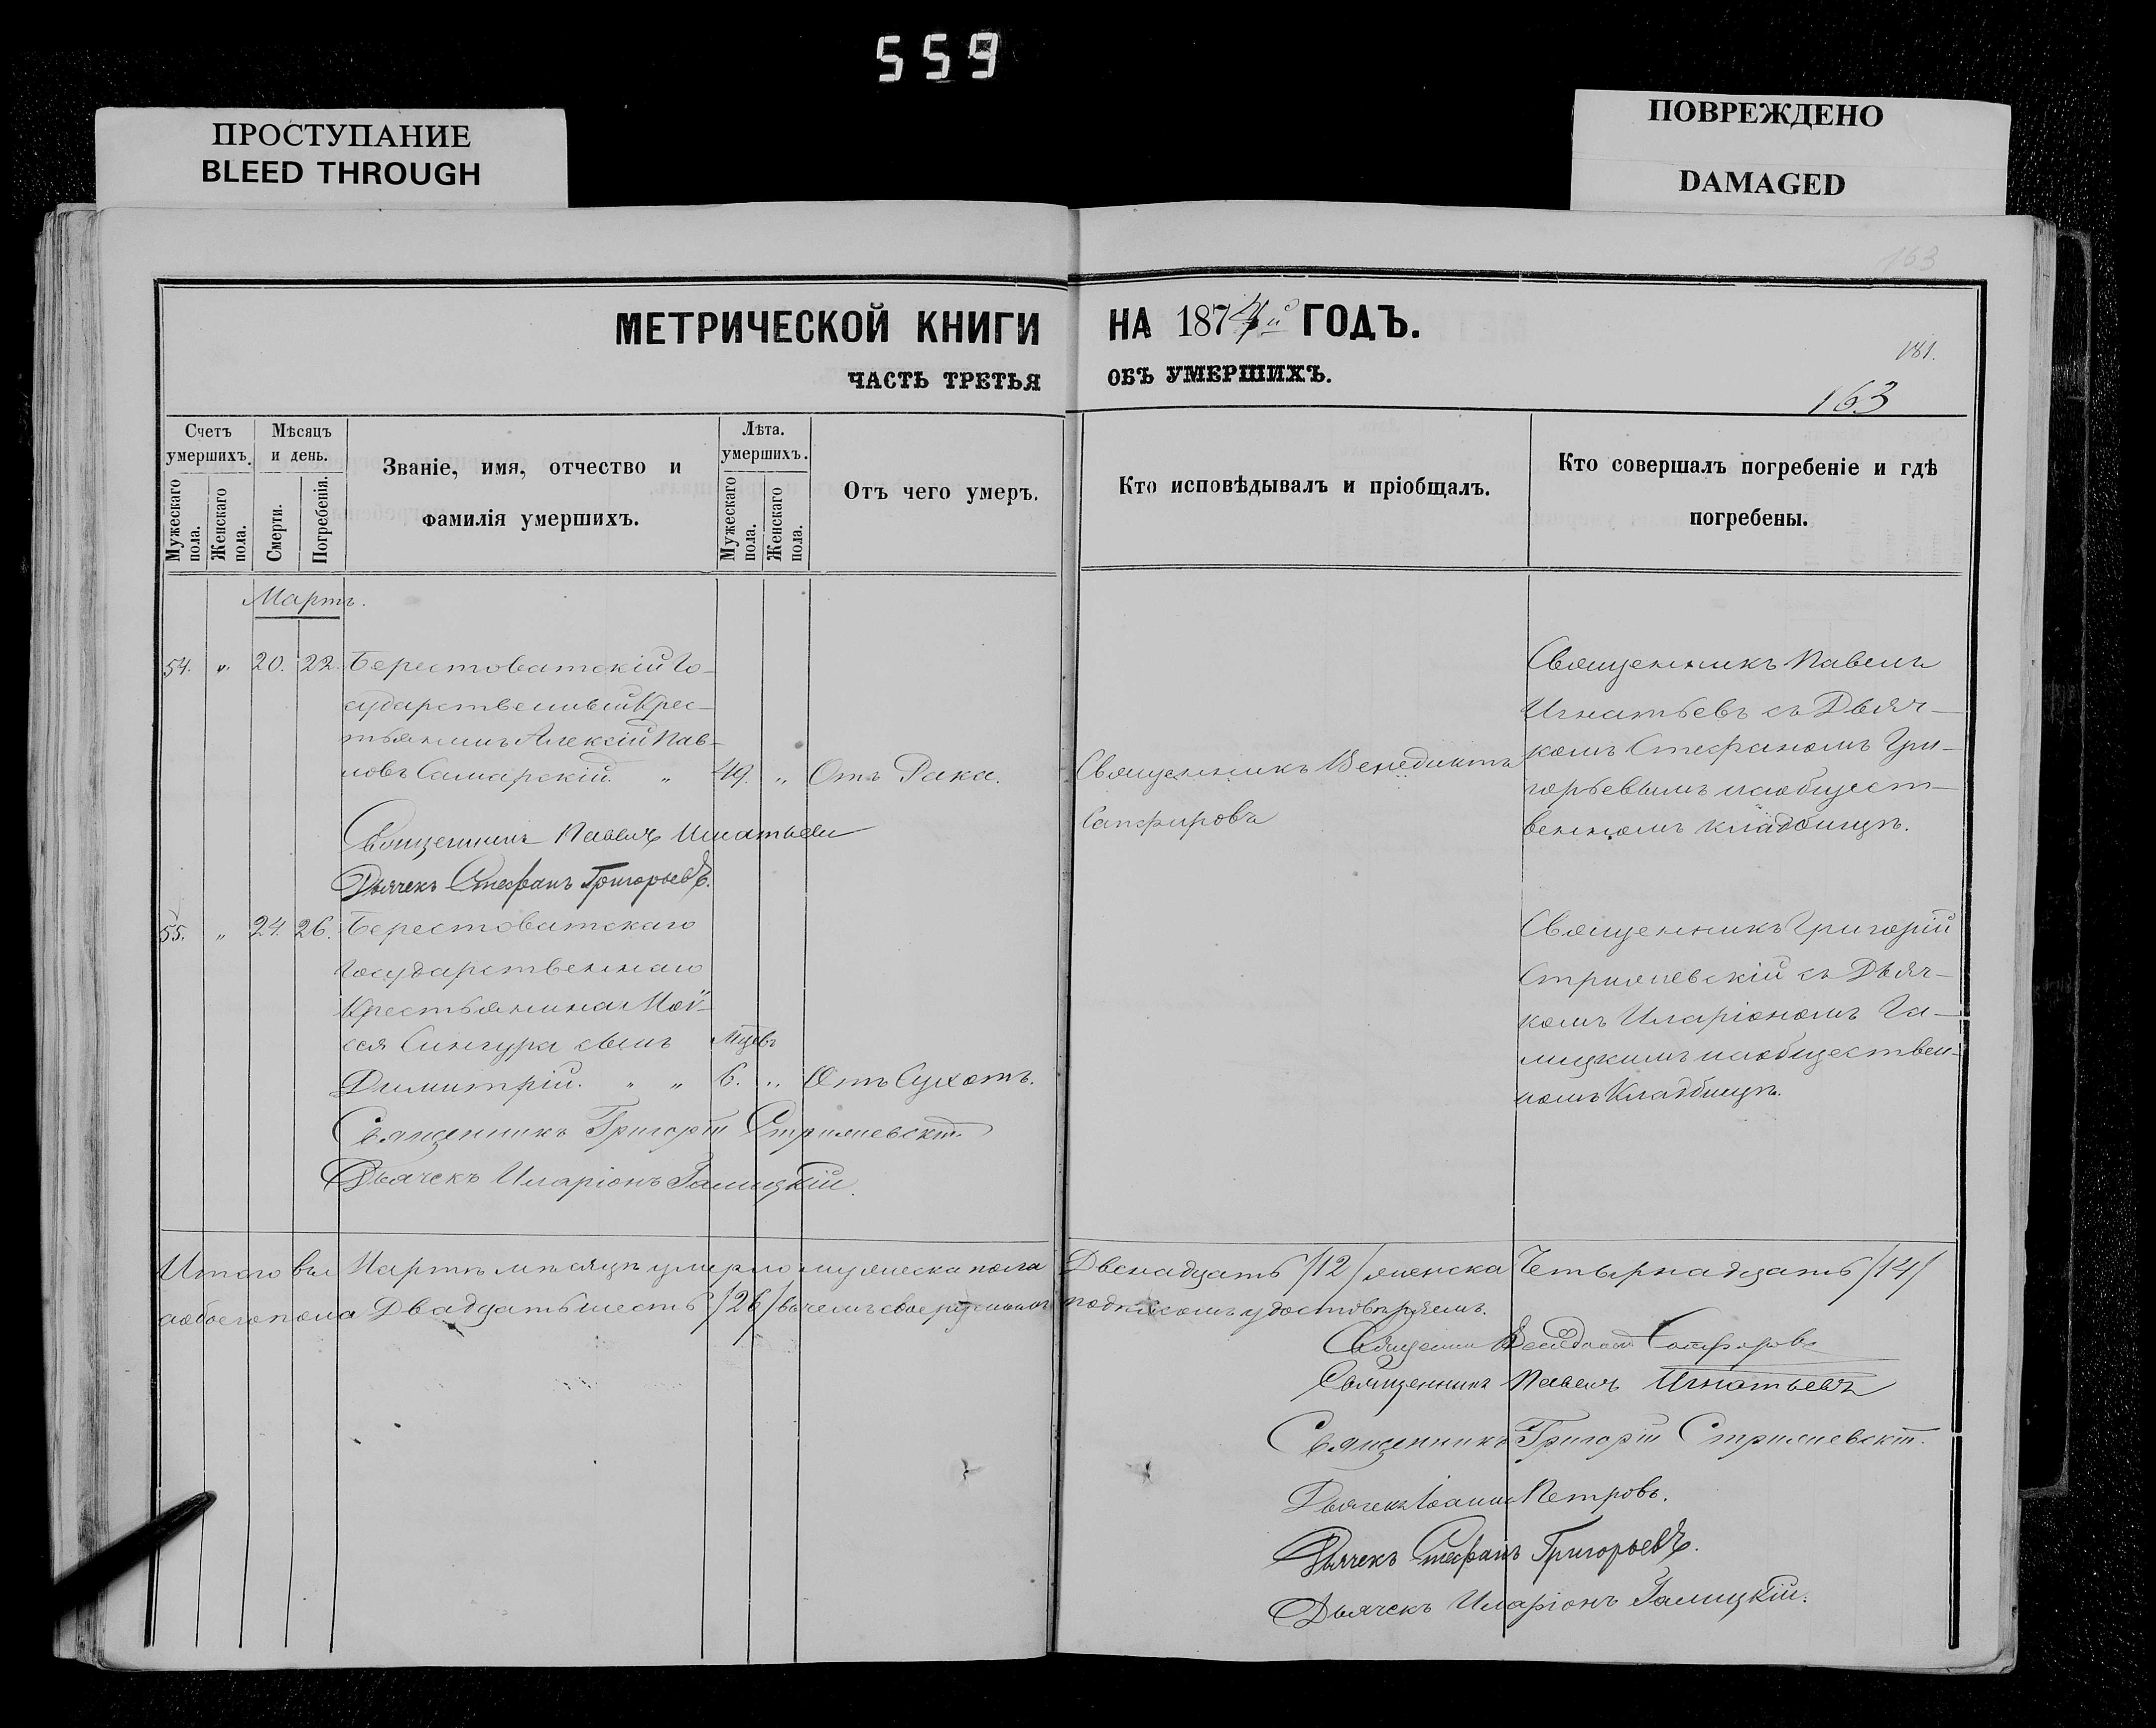 559
ПРОСТУПАНИЕ
BLEED THROUGH
ПОВРЕЖДЕНО
DAMAGED
163
МЕТРИЧЕСКОЙ КНИГИ НА 1874й ГОДЪ.
181.
ЧАСТЬ ТРЕТЬЯ ОБЪ УМЕРШИХЪ.
163
Счетъ умершихъ.
Мужескаго пола.
Женскаго пола.
Мѣсяцъ и день.
Смерти.
Погребенія.
Званіе, имя, отчество и
фамилія умершихъ.
Лѣта. умершихъ.
Мужескаго пола.
Женскаго пола.
Отъ чего умеръ.
Кто исповѣдывалъ и пріобщалъ.
Кто совершалъ погребеніе и гдѣ
погребены.
Мартъ.
54. " 20. 22. Берестоватскій Го-
сударственный Крес-
тьянинъ Алексій Пав-
ловъ Самарскій. " 49. " Отъ Рака.
Священникъ Венедиктъ
Сапфировъ
Священникъ Павелъ
Игнатьевъ съ Дьяч-
комъ Стефаномъ Гри-
горьевымъ на общест-
венномъ кладбищѣ.
Священникъ Павелъ Игнатьевъ
Дьячекъ Стефанъ Григорьевъ.
55. " 24. 26. Берестоватскаго
Государственнаго
Крестьянина Мои-
сея Сингура сынъ Мцевъ
Димитрій. " " 6. " Отъ Сухотъ.
Священникъ Григорій
Стрижевскій съ Дьяч-
комъ Иларіономъ Га-
лицкимъ на обществен-
номъ Кладбищѣ.
Священникъ Григорій Стрижевскій
Дьячекъ Иларіонъ Галицкій.
Итого въ Мартѣ мѣсяцѣ умерло мужеска пола Двенадцать /12/ женска Четырнадцать /14/
а обоего пола Двадцать шесть /26/ въ чемъ своеручнымъ подписомъ удостовѣряемъ.
Священникъ Венедиктъ Сапфировъ
Священникъ Павелъ Игнатьевъ
Священникъ Григорій Стрижевскій.
Дьячекъ Іоаннъ Петровъ.
Дьячекъ Стефанъ Григорьевъ.
Дьячекъ Иларіонъ Галицкій.